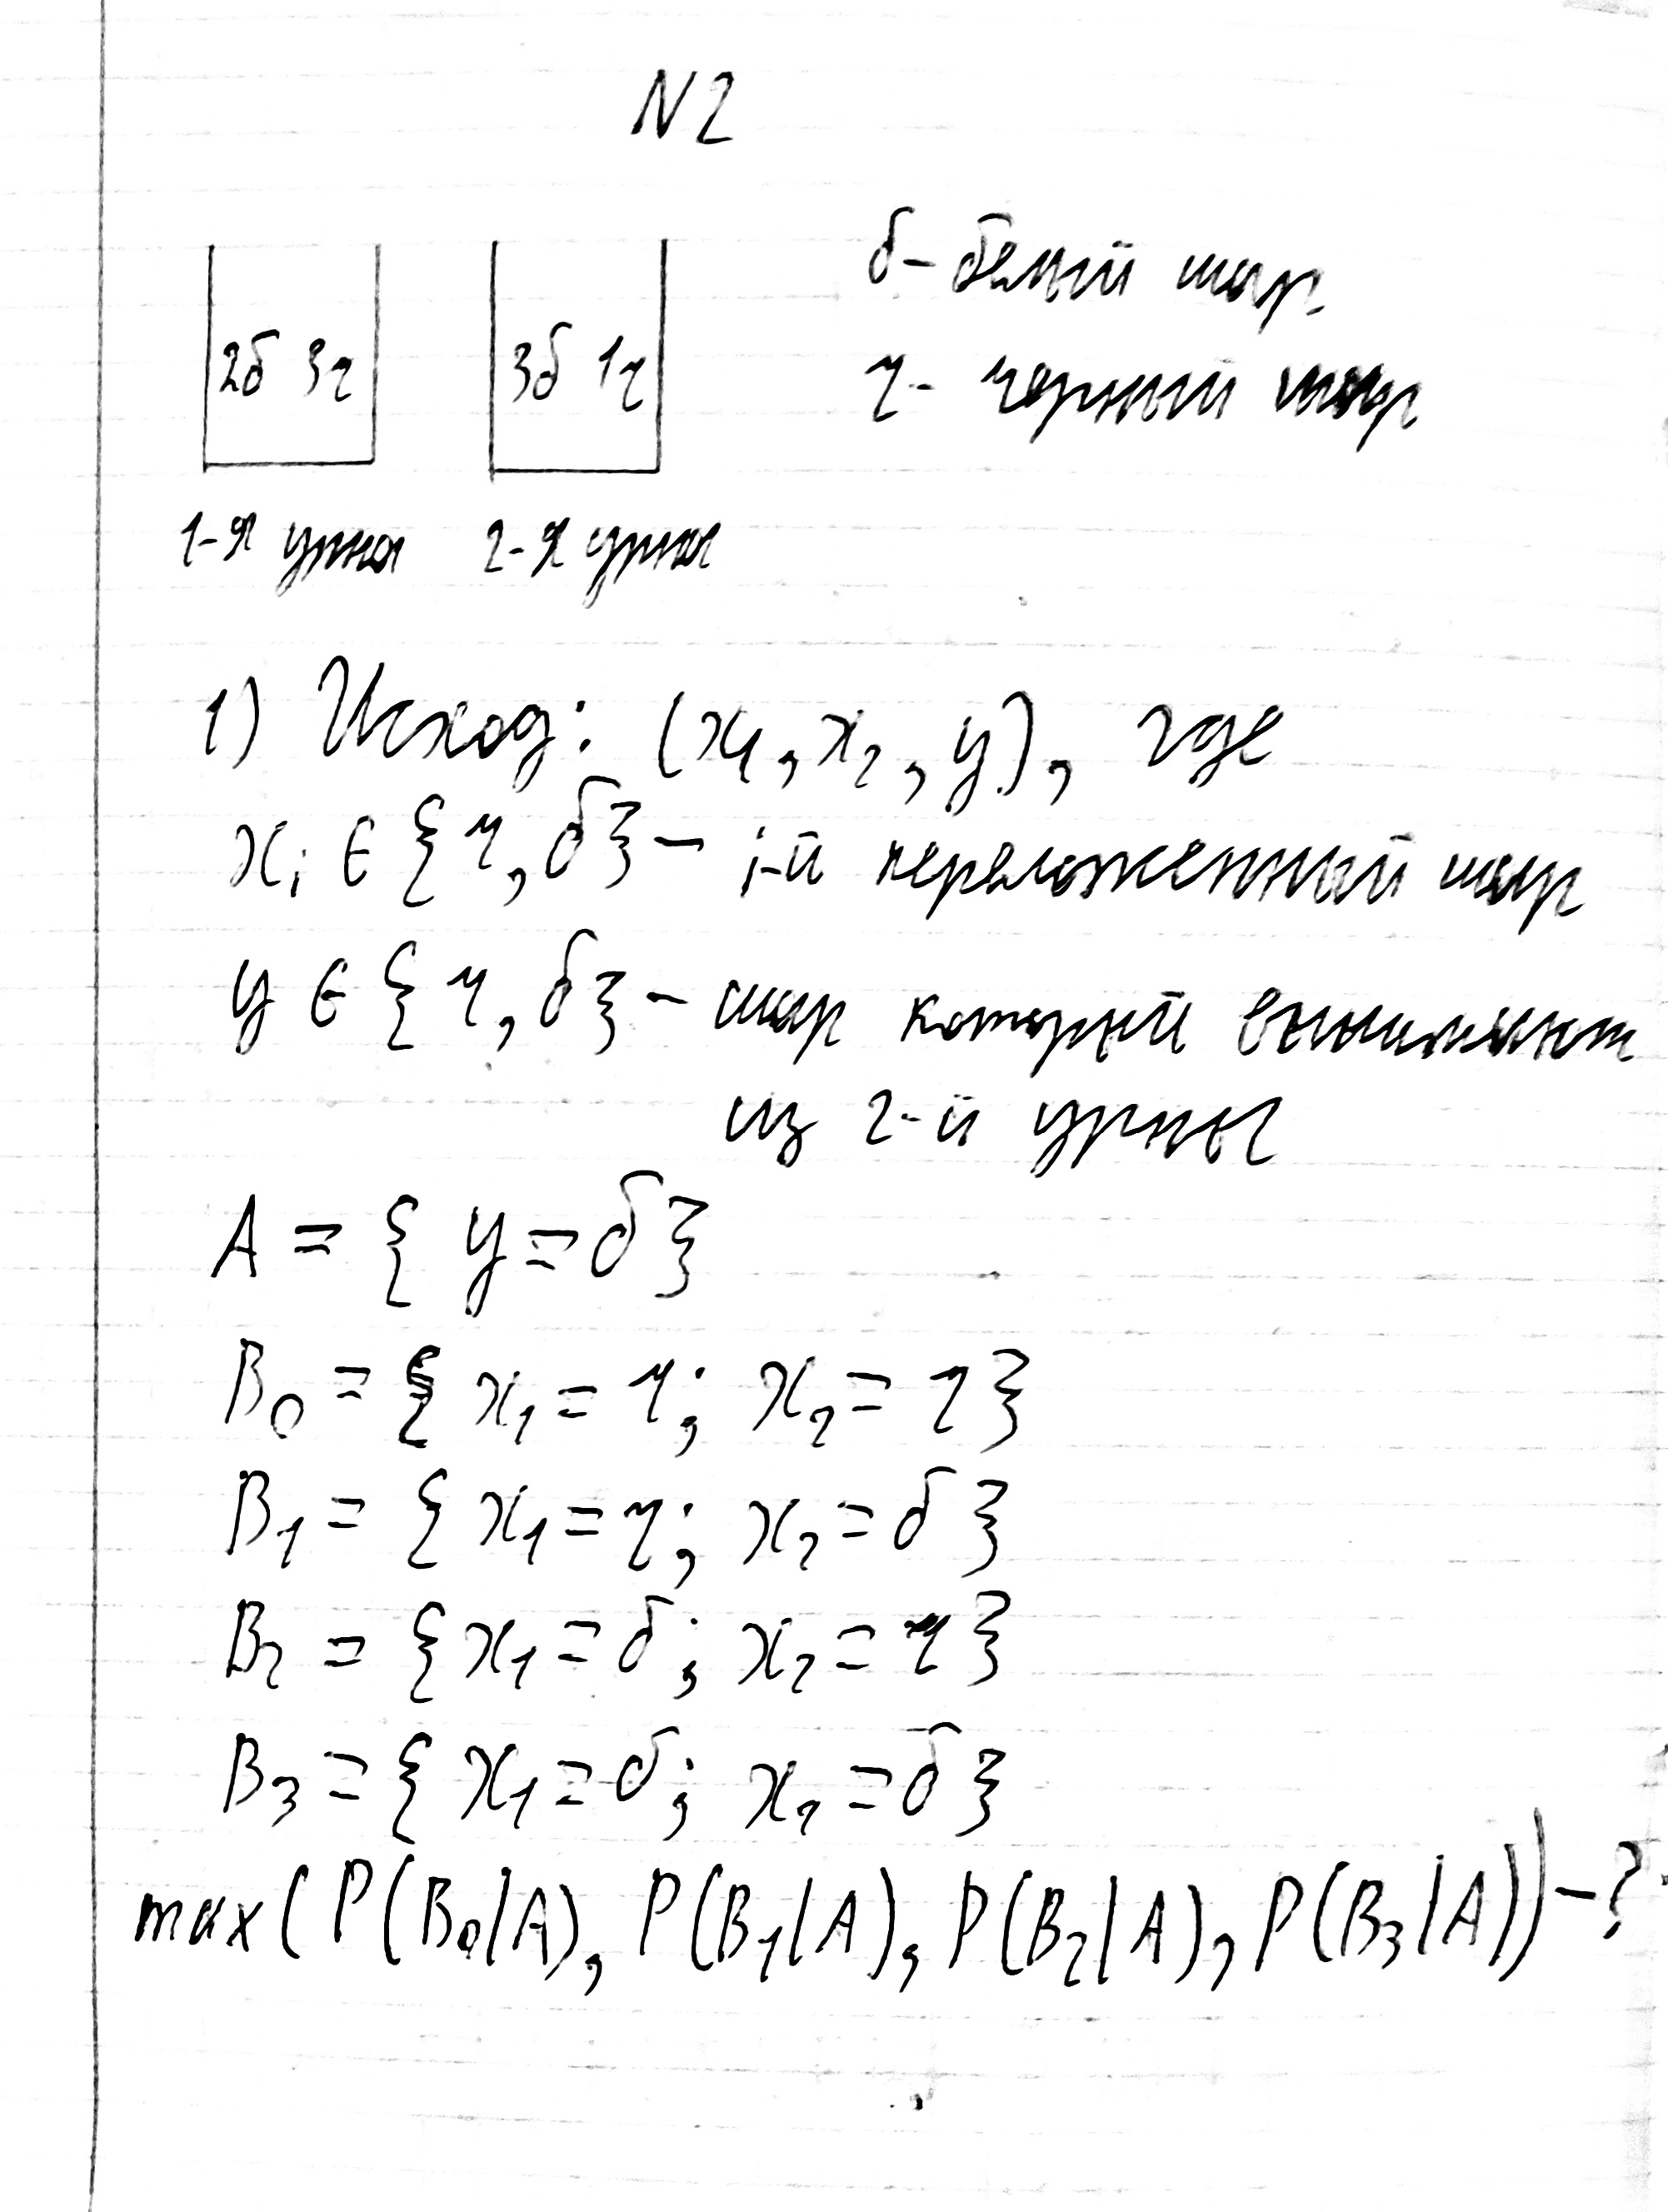 N2
2б 3ч
3б 1ч
б - белый шар
ч - черный шар
1-я урна 2-я урна
1) Исход: (x₁, x₂, y), где
xᵢ ∈ {ч, б} - i-й переложенный шар
y ∈ {ч, б} - шар который вынимают
из 2-й урны
A = { y = б }
B₀ = { x₁ = ч; x₂ = ч }
B₁ = { x₁ = ч; x₂ = б }
B₂ = { x₁ = б; x₂ = ч }
B₃ = { x₁ = б; x₂ = б }
max(P(B₀|A), P(B₁|A), P(B₂|A), P(B₃|A)) - ?